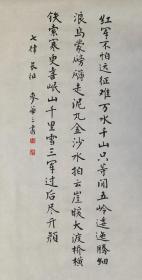 红军不怕远征难万水千山只等闲五岭逶迤腾细
浪乌蒙磅礴走泥丸金沙水拍云崖暖大渡桥横
铁索寒更喜岷山千里雪三军过后尽开颜
七律 长征 麦华三书